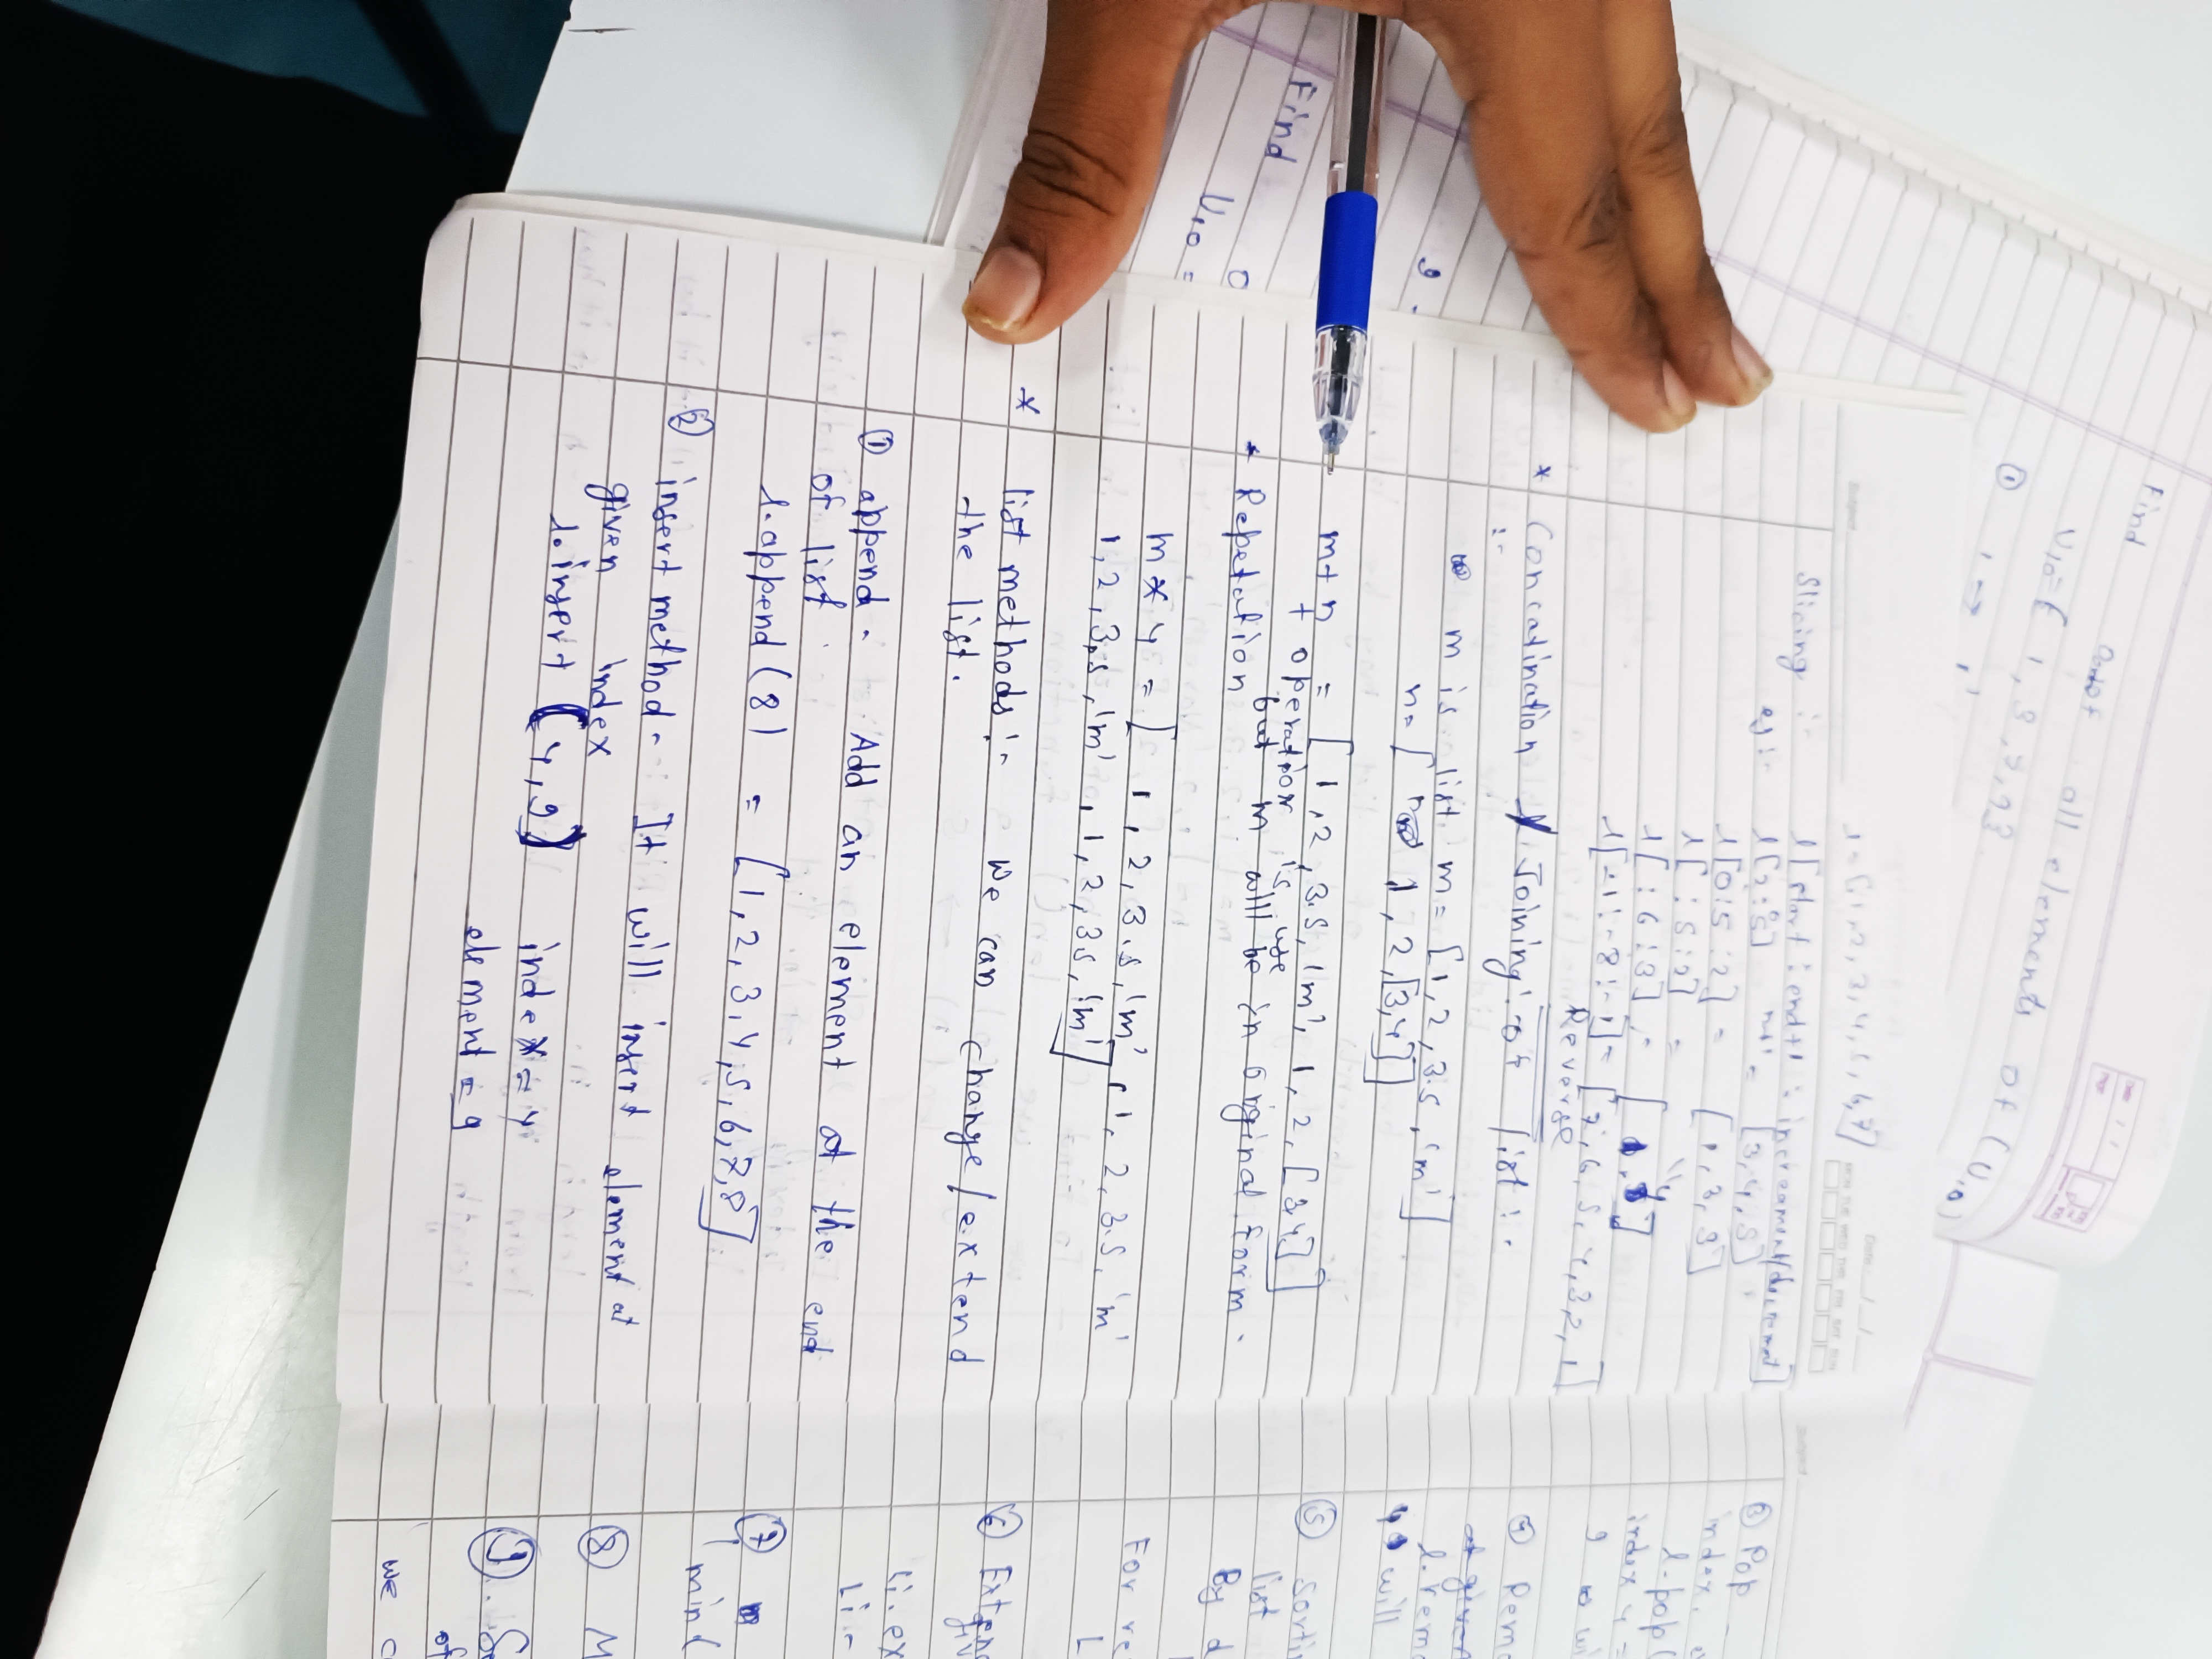 Find
out all elements of (U10)
U10 = { 1, 3, 7, 9 }
①
Find
U10 =
l = [1, 2, 3, 4, 5, 6, 7]
Slicing :-
l [start : end+1 : increament/decrement]
eg:- l [2:5] = [3, 4, 5]
l [0:5:2] = [1, 3, 5]
l [ :5:2] = "
l [ :6:3] = [1, 4]
l [-1:-8:-1] = [7, 6, 5, 4, 3, 2, 1]
Reverse
* Concatination / Joining of list :-
:-
m is list m = [1, 2, 3.5, 'm']
n = [1, 2, [3,4]]
m + n = [1, 2, 3.5, 'm', 1, 2, [3,4]]
+ operation is use
but m will be in original form.
* Repetation
m * 4 = [1, 2, 3.5, 'm', 1, 2, 3.5, 'm'
1, 2, 3.5, 'm', 1, 2, 3.5, 'm']
* list methods :- we can change / extend
the list.
① append - Add an element at the end
of list.
l.append (8) = [1, 2, 3, 4, 5, 6, 7, 8]
② insert method - It will insert element at
given index
l.insert (4, 9) index = 4
element = 9
③ Pop -
index.
l.pop(
index 4 =
9
④ Remo
at given
l.remo
will
⑤ Sortin
list
By d
For re
L
⑥ Exten
giv
li.ex
Li =
⑦
min(
⑧ M
⑨
of
we c